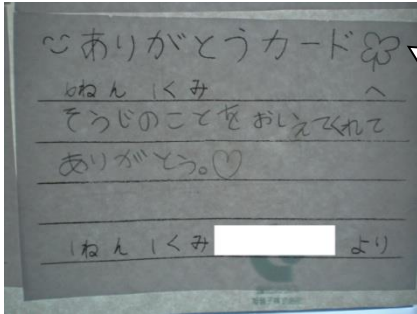 ありがとうカード
6ねん1くみ へ
そうじのことをおしえてくれて
ありがとう。♡
1ねん1くみ より